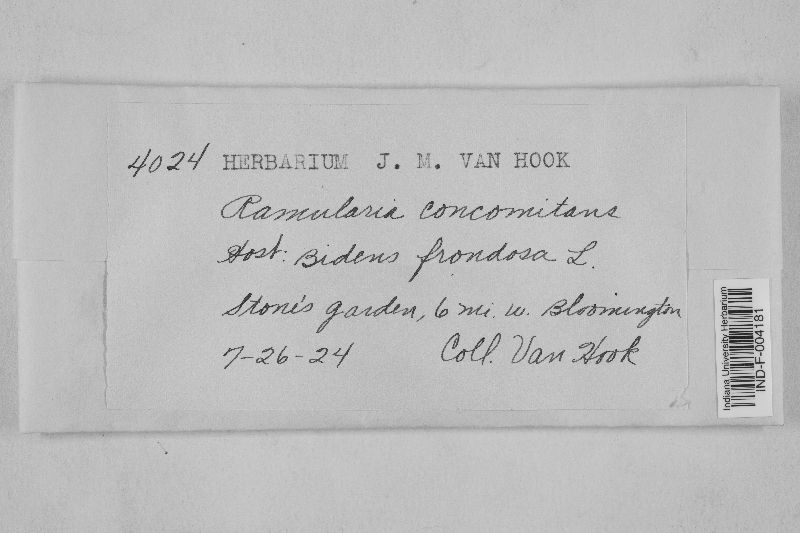 4024 HERBARIUM J. M. VAN HOOK
Ramularia concomitans
Host: Bidens frondosa L.
Stone's garden, 6 mi. w. Bloomington
7-26-24 Coll. Van Hook
Indiana University Herbarium
IND-F-004181